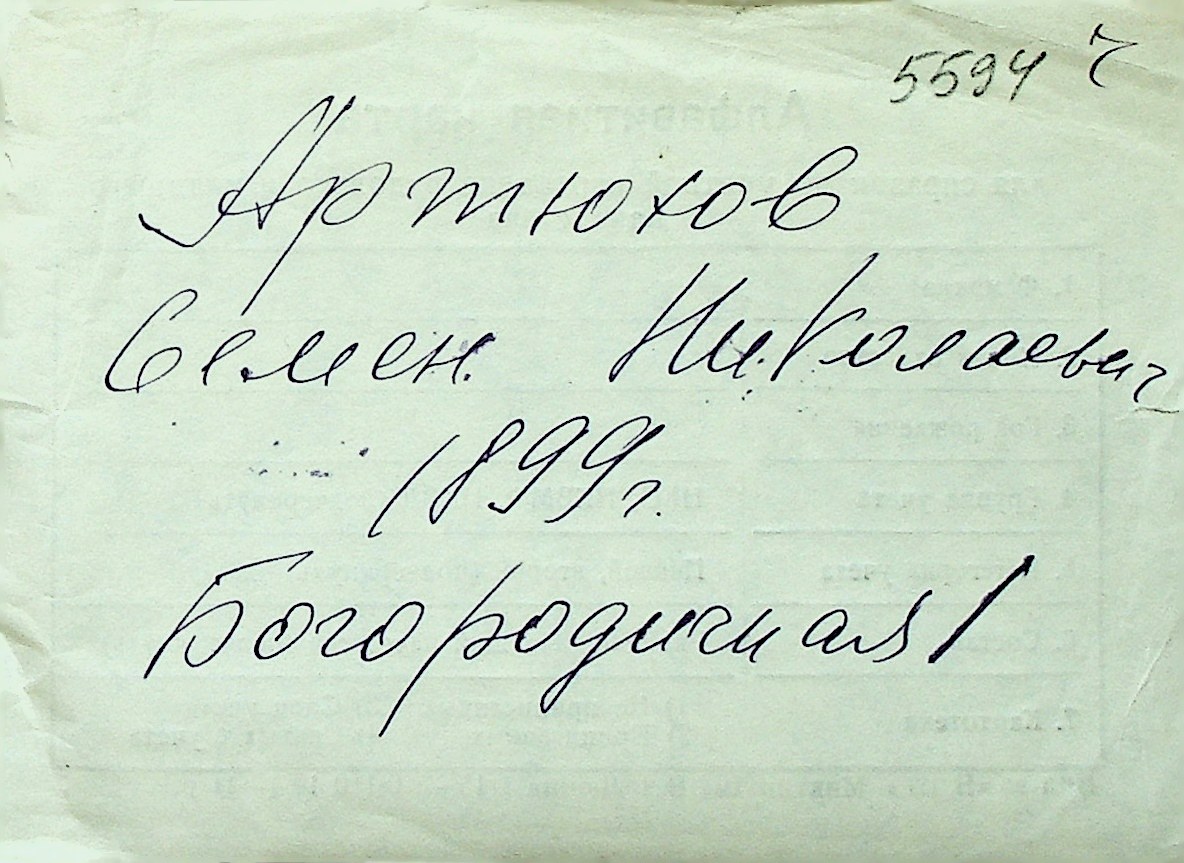 5594 ч
Артюхов
Семен Николаевич
1899 г.
Богородичная 1